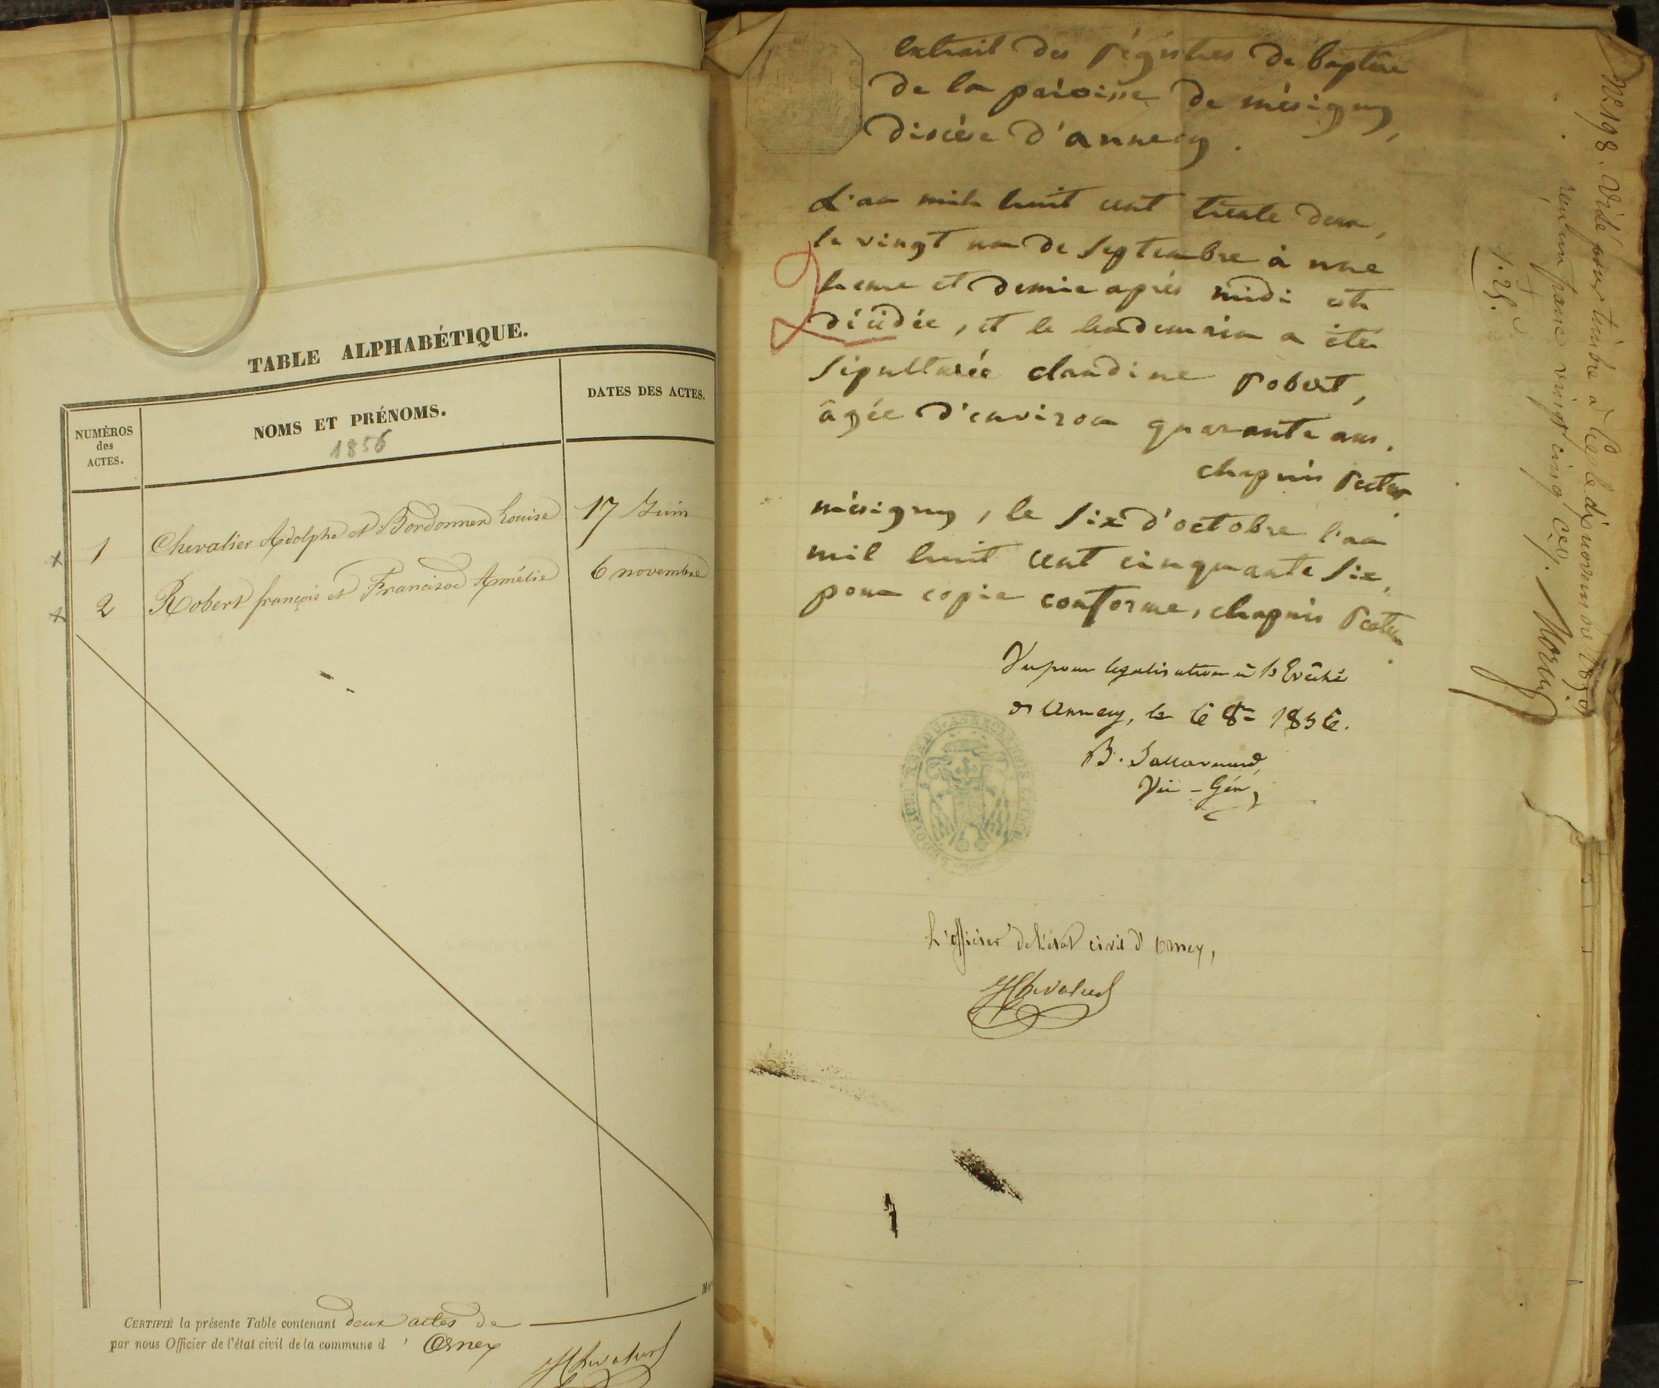 TABLE ALPHABÉTIQUE.
NUMÉROS
des
ACTES.
NOMS ET PRÉNOMS.
1856
DATES DES ACTES.
1 Chevalier Adolphe et Bordonnex Louise 17 Juin
2 Robert françois et Amélie 6 novembre
CERTIFIÉ la présente Table contenant deux actes de
par nous Officier de l'état civil de la commune d' Ornex
Extrait des régistres de baptême
de la paroisse de mésigny,
diocèse d'annecy.
L'an mil huit cent trente deux,
le vingt un de septembre à une
heure et demie après midi est
décédée, et le lendemain a été
sépulturée claudine robert,
âgée d'environ quarante ans.
chapuis recteur
mésigny, le six d'octobre l'an
mil huit cent cinquante six,
pour copie conforme, chapuis recteur
Vu pour légalisation à l'Evêché
d'Annecy, le 6 8re 1856.
Vic-Gén
L'officier de l'état civil d'Ornex,
HChevalier
No 198. Visé pour timbre à le dix novembre 1856
reçu un franc vingt cinq ces.
1.25.c